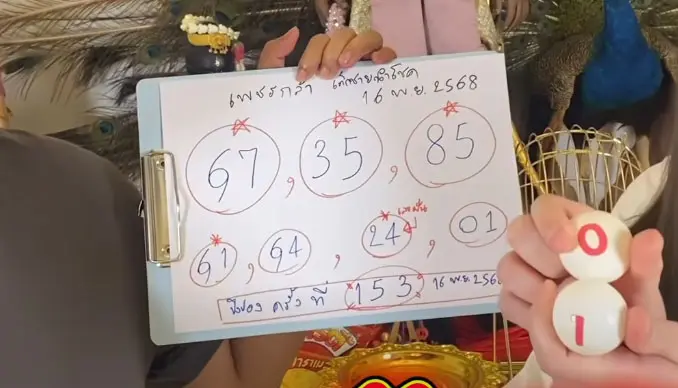 เพชรกล้า เด็กชายนำโชค
16 พ.ย. 2568
67, 35, 85
เลขฝัน
61, 64, 24, 01
ปิงปอง ครั้งที่ 153 16 พ.ย. 2568
0
1